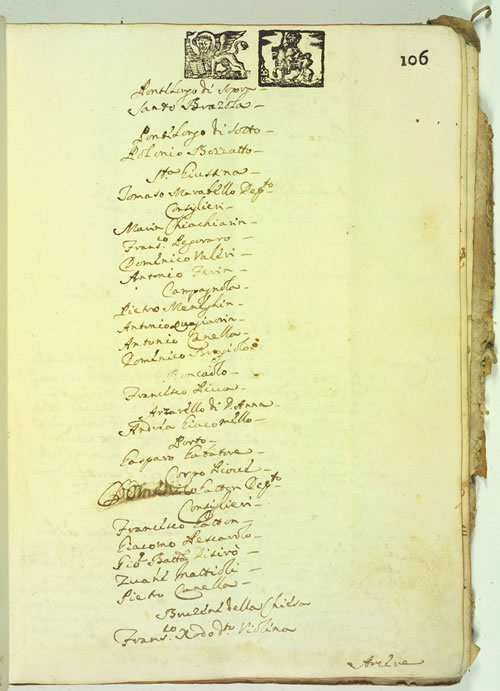 106
Pontelongo di sopra
Santo Brazola
Pontelongo di Sotto
Polonio Bozzatto
Sta Giustina
Tomaso Marabello Depto
Consiglieri
Marin Chiachiarin
Fransco Pegoraro
Domenico Valeri
Antonio Ferin
Campagnola
Pietro Meneghin
Antonio
Antonio Canella
Domenico
Roncaolo
Francesco Licca
Arzarello di S. Anna
Andrea Giacomello
Porto
Gasparo Salatore
Corpo
Domenico Catton Depto
Consiglieri
Francesco Catton
Giacomo Pescarolo
Gio Batta
Zuane Mattioli
Pietro Canella
della Chiesa
Fransco Rodo do Violina